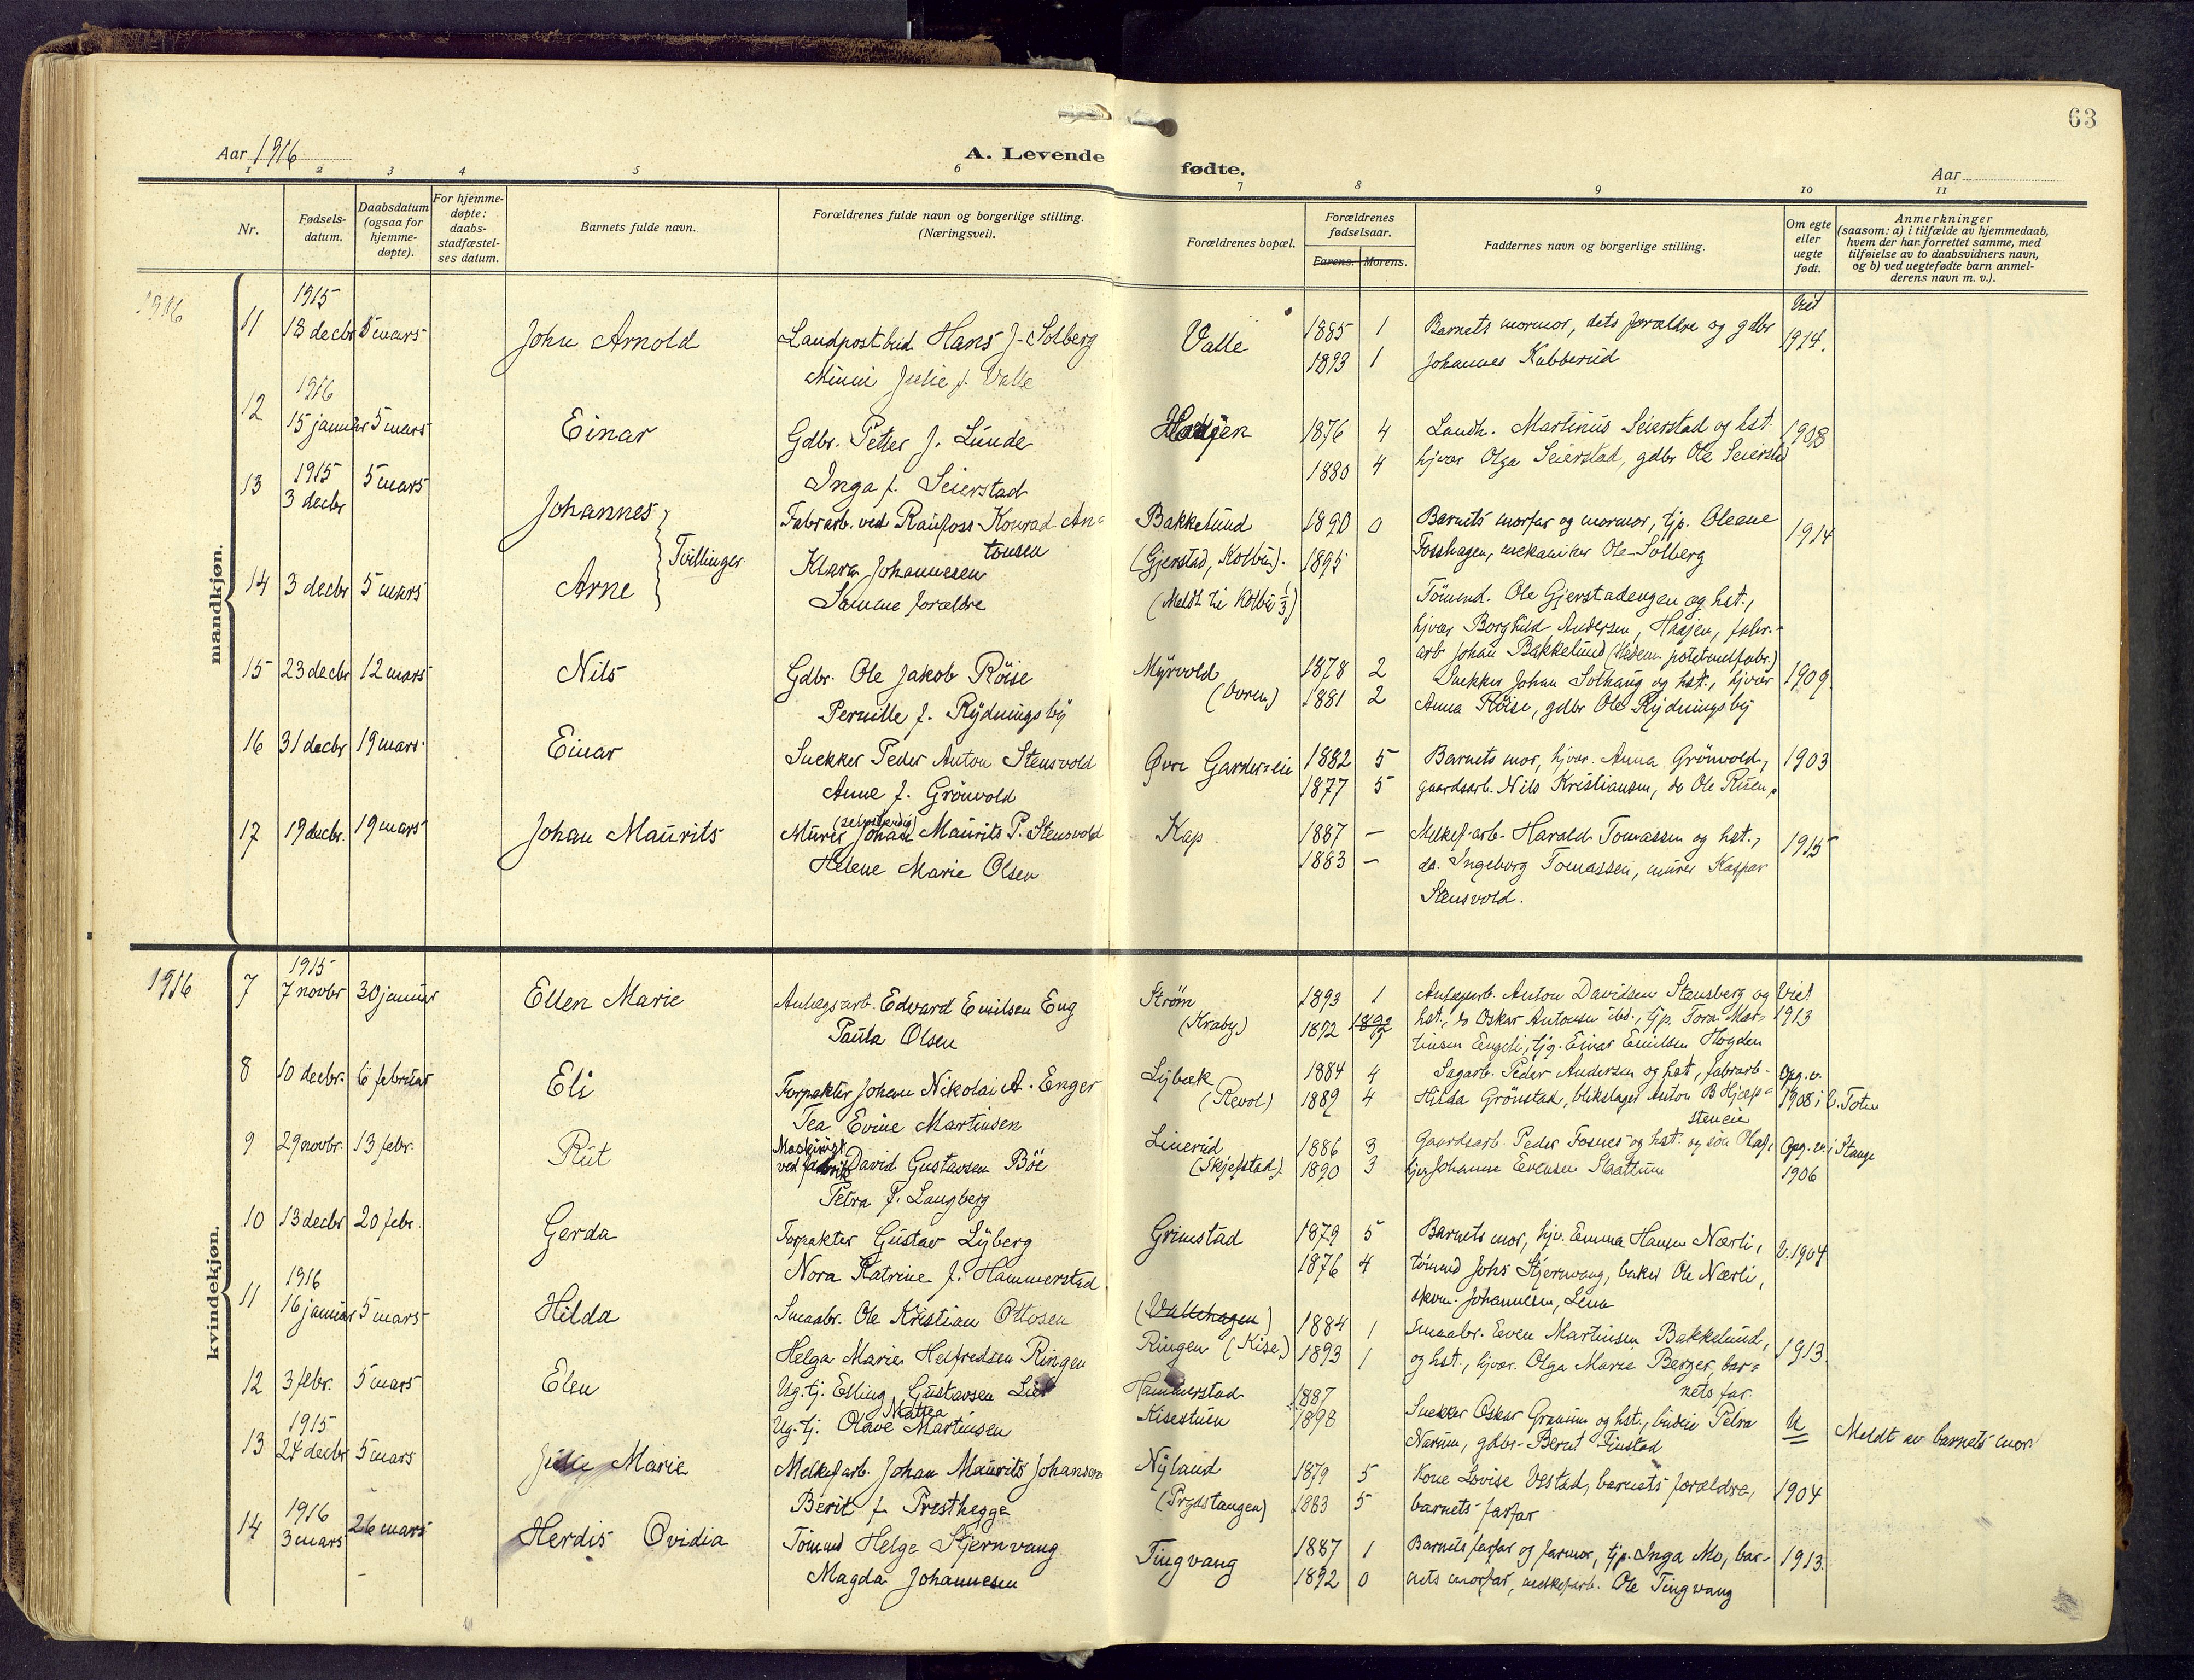 63
Aar 1916
A. Levende fødte.
Aar
1 2 3 4 5 6 7 8 9 10 11
Nr.
Fødsels-datum.
Daabsdatum (ogsaa for hjemme-døpte).
For hjemme-døpte: daabs-stadfæstel-ses datum.
Barnets fulde navn.
Forældrenes fulde navn og borgerlige stilling. (Næringsvei).
Forældrenes bopæl.
Forældrenes fødselsaar.
Farens. Morens.
Faddernes navn og borgerlige stilling.
Om egte eller uegte født.
Anmerkninger (saasom: a) i tilfælde av hjemmedaab, hvem der har forrettet samme, med tilføielse av to daabsvidners navn, og b) ved uegtefødte barn anmel-derens navn m. v.).
1916
mandkjøn.
1915 Viet
11 18 decbr 5 mars John Arnold Landpostbud Hans J. Solberg Valle 1885 1 Barnets mormor, dets forældre og gdbr 1914.
Minni Julie f. Valle 1893 1 Johannes Kubberud
1916
12 15 januar 5 mars Einar Gdbr. Petter J. Lunde 1876 4 Landh. Martinus Seierstad og hst. 1908
Inga f. Seierstad 1880 4 hjvær Olga Seierstad, gdbr Ole Seierstad
1915
13 3 decbr 5 mars Johannes Fabrarb. ved Raufoss Konrad An= Bakkelund 1890 0 Barnets morfar og mormor, tjp. Oleane 1914
tonsen
Tvillinger
Klara Johannesen (Gjerstad, Kolbu). 1895 Fosshagen, mekaniker Ole Solberg
14 3 decbr 5 mars Arne Samme forældre (Meldt til Kolbu 1/3) Tömmd. Ole Gjerstadengen og hst.,
hjvær Borghild Andersen, Haajen, fabr.-
arb Johan Bakkelund (Hedem. potetmelfabr.)
15 23 decbr 12 mars Nils Gdbr. Ole Jakob Röise Myrvold 1878 2 Snekker Johan Solhaug og hst., hjvær 1909
Pernille f. Rydningsby (Ovren) 1881 2 Anna Röise, gdbr Ole Rydningsby
16 31 decbr 19 mars Einar Snekker Peder Anton Stensvold Øvre Garder=eie 1882 5 Barnets mor, hjvær. Anna Grönvold, 1903
Anne f. Grönvold 1877 5 gaardsarb. Nils Kristiansen, do Ole Risen,
(selvstendig)
17 19 decbr. 19 mars Johan Maurits Murer Johan Maurits P. Stensvold Kap 1887 — Melkef. arb. Harald Tomassen og hst., 1915
Helene Marie Olsen 1883 — do. Ingeborg Tomassen, murer Kaspar
Stensvold.
1916
kvindekjøn.
1915
7 7 novbr 30 januar Ellen Marie Anlægsarb. Edvard Emilsen Eng Strøm 1893 1 Anlægsarb. Anton Davidsen Stensberg og Viet
Paula Olsen (Kraby) 1872 hst., do Oskar Antonsen ibd., tjp. Tora Mar= 1913
tinsen Engeli, tjg. Einar Emilsen Hogden
8 10 decbr. 6 februar Eli Forpakter Johan Nikolai A. Enger Lybæk 1884 4 Sagarb. Peder Andersen og hst, fabrarb. Opg. v.
Tea Evine Martinsen (Revol) 1889 4 Hilda Grönstad, blikslager Anton B Hjelp= 1908 i V. Toten
steneie
9 29 novbr. 13 febr. Rut Maskinist ved fabrik David Gustavsen Böe Linerud 1886 3 Gaardsarb. Peder Fosnes og hst. og søn Olaf, Opg. v. i Stange
Petra P. Langberg (Skjefstad) 1890 3 Johanne Evensen Slaattum 1906
10 13 decbr 20 febr. Gerda Forpakter Gustav Lyberg Grimstad 1879 5 Barnets mor, hjv. Emma Hansen Nærli, V. 1904
Nora Katrine f. Hammerstad 1876 4 tömmd Johs Stjernvang, baker Ole Nærli,
skom. Johannesen, Lena
1916
11 16 januar 5 mars Hilda Smaabr. Ole Kristian Ottosen (Vallehagen) 1884 1 Smaabr. Even Martinsen Bakkelund, 1913.
Helga Marie Helfredsen Ringen Ringen (Kise) 1893 1 og hst., hjvær. Olga Marie Berger, bar=
nets far.
12 3 febr. 5 mars Elen Ug. tj. Elling Gustavsen Lier Hammerstad 1887 Snekker Oskar Granum og hst., budeie Petra U Meldt av barnets mor
Mattea
Ug. tj. Olave Martinsen Kisestuen 1898 Narum, gdbr. Bernt Finstad
1915
13 24 decbr 5 mars Julie Marie Melkef arb. Johan Maurits Johansen Nyland 1879 5 Kone Lovise Vestad, barnets forældre, 1904
Berit f. Presthegge (Prydstangen) 1883 5 barnets farfar
1916
14 3 mars 26 mars Herdis Ovidia Tömmd Helge Stjernvang Tingvang 1887 1 Barnets farfar og farmor, tjp. Inga Mo, bar- 1913.
Magda Johannesen 1892 0 nets morfar, melkefarb. Ole Tingvang